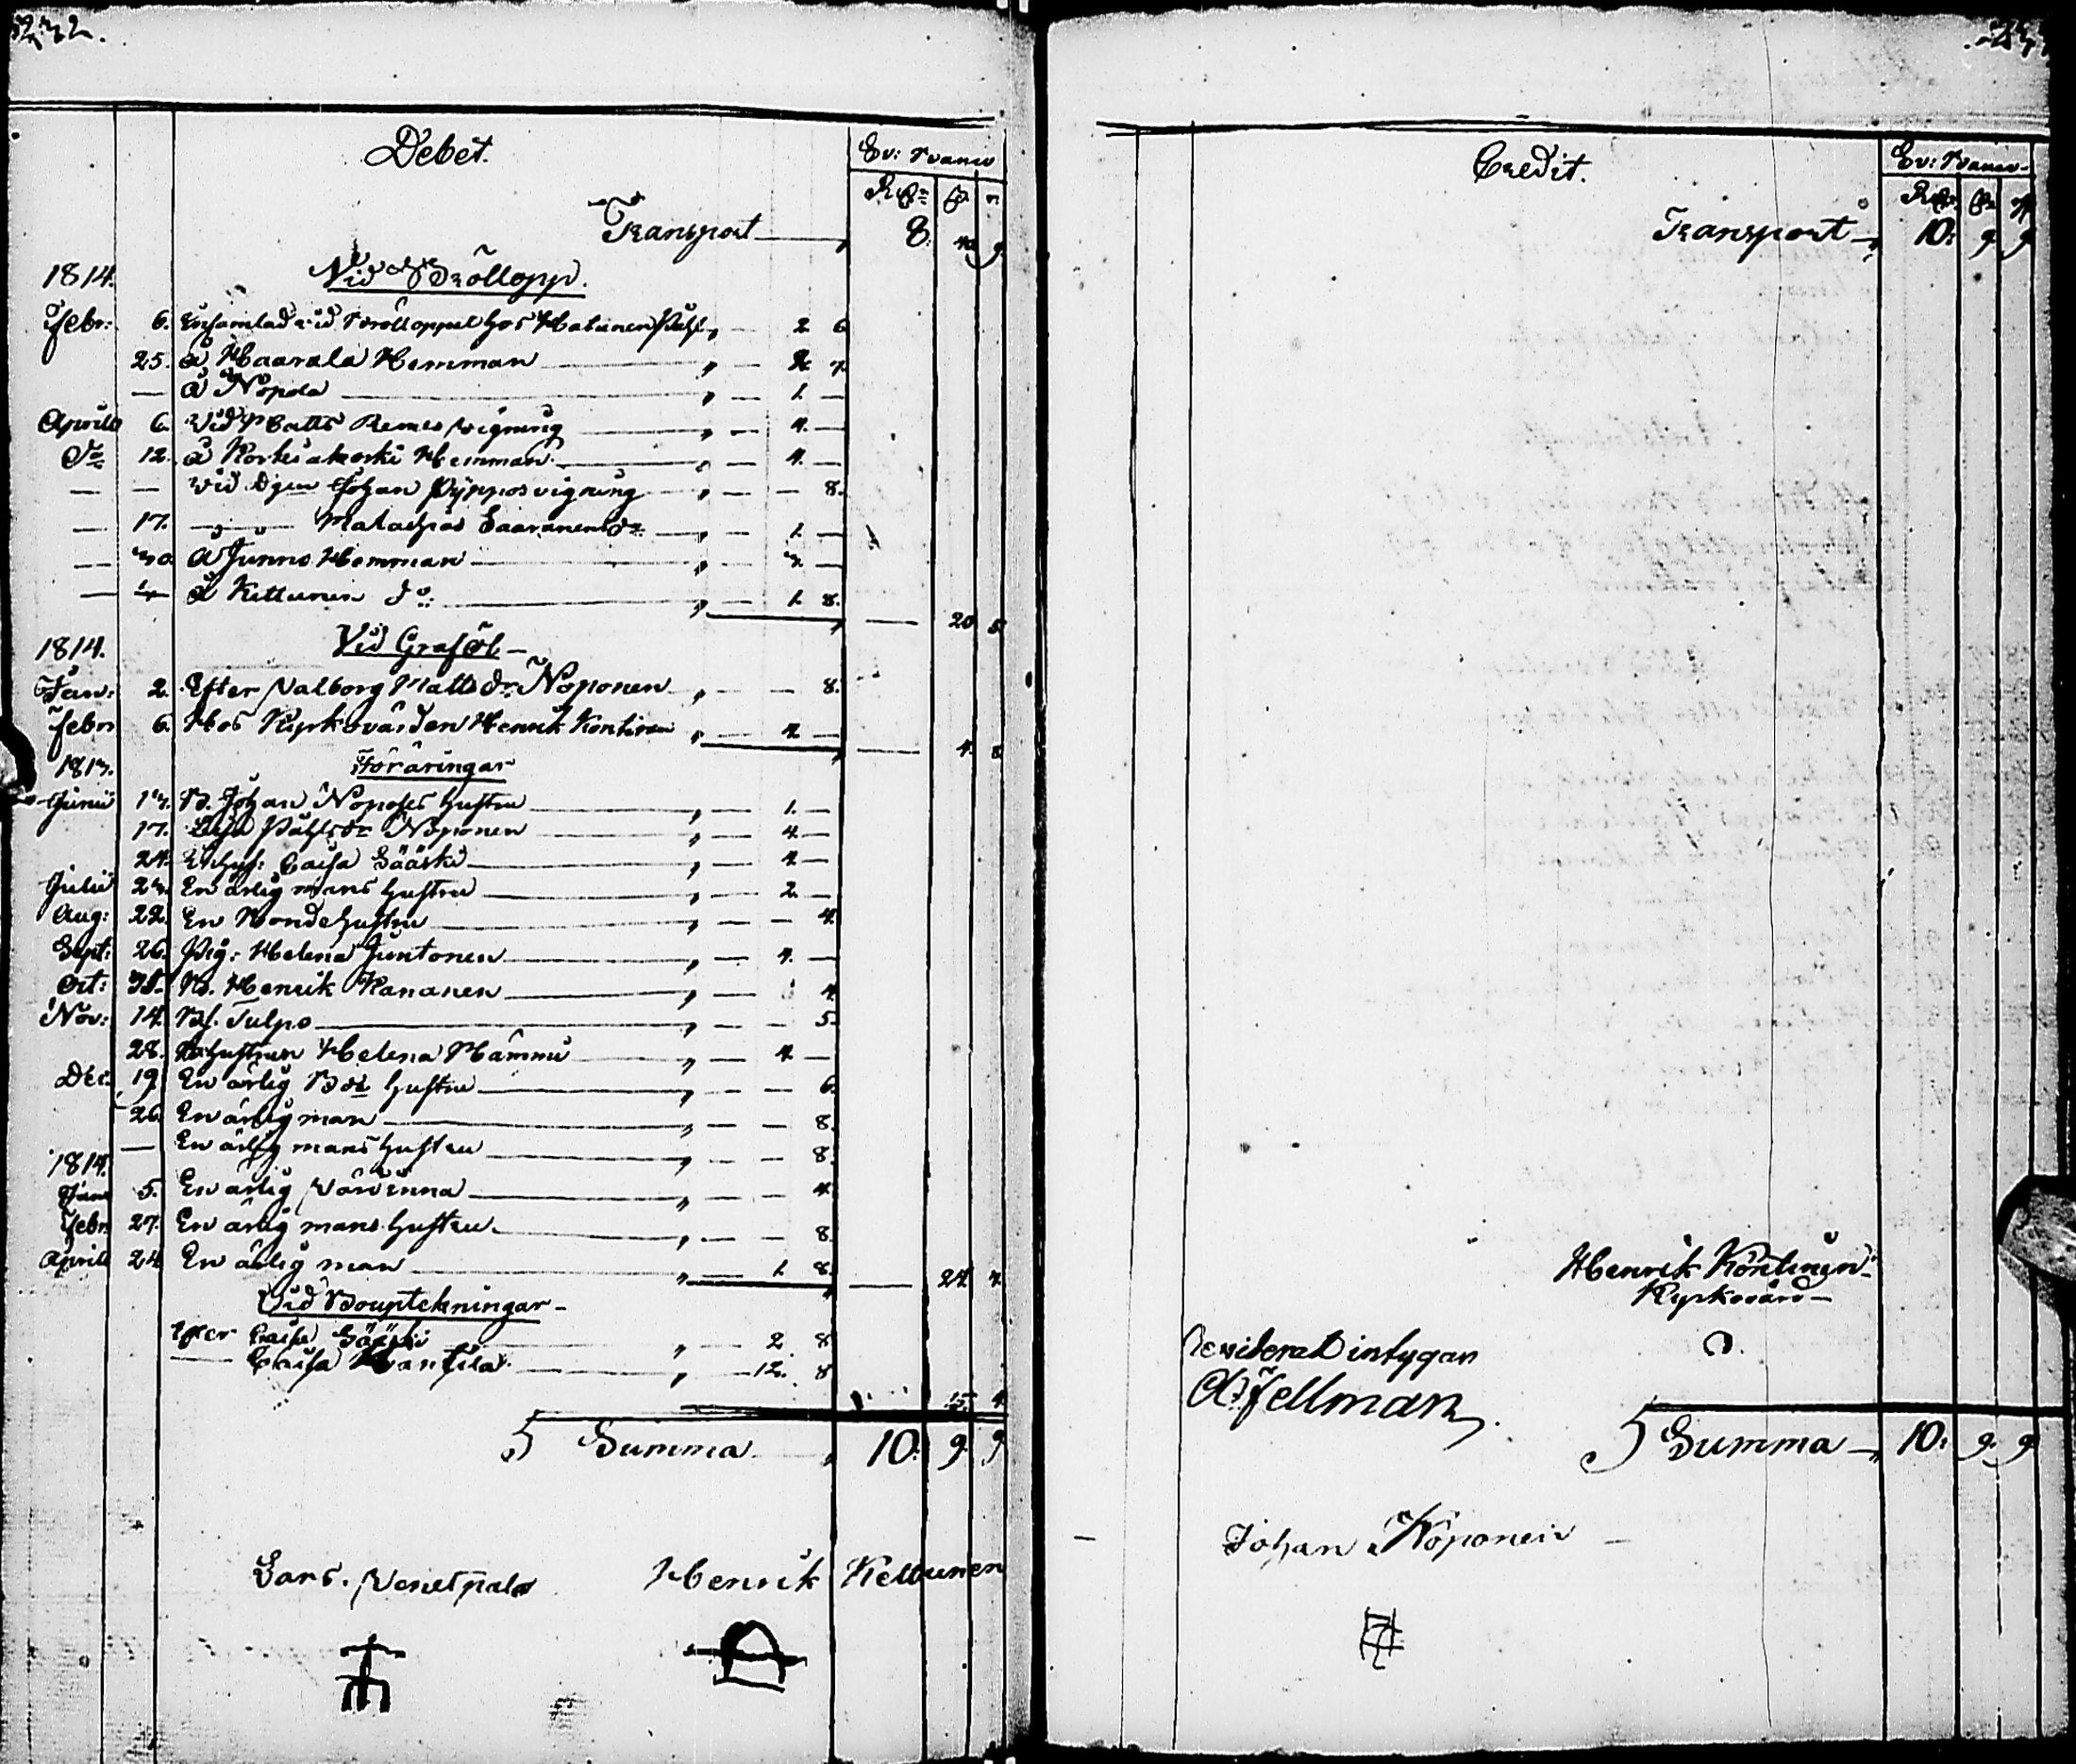 232.
Debet.
Sv: Banco
Rd: s r
Transport 8: 40 9
1814. Vid Bröllopp.
Febr: 6. Ensamlad vid Brölloppet hos Matunen Påhl „ — 2 6
25. å Haarala Hemman „ — 2 7.
— å Nopola „ — 1. —
Aprill 6. Vid Matts Remes vigning „ — 4. —
Do 12. å Korkiakoski Hemman „ — 4. —
— — vid Dgen Johan Pyppos vigning „ — — 8.
— 17. — „ — Matathias Saaranens do „ — 1. —
— 30 å Junno Hemman „ — 3 —
— — å Kettunen do: „ — 1. 8.
— 20 5
1814. Vid Graföl —
Jan: 2. Efter Valborg Mattsdr Noponen „ — — 8.
Febr 6. Hos Kyrkovärden Henrik Kontinen „ — 4 —
— 4. 8
1813. Föräringar
Junii 13. B. Johan Noposes hustru „ — 1. —
17. Lisa Påhlsdr Noponen „ — 4 —
24. Caisa Sääski „ — 4 —
Julii 23. En ärlig mans hustru „ — 2. —
Aug: 22. En Bondehustru „ — — 4.
Sept: 26. Pig: Helena Juntonen „ — 4. —
Oct: 31. B. Henrik Kananen „ — 4
Nov: 14. Bs. Tulpo „ — — 5.
28. Bhustrun Helena Mämmi „ — 4 —
Dec. 19. En ärlig Bde hustru „ — — 6.
26. En ärlig man „ — — 8.
— En ärlig mans hustru „ — — 8.
1814.
Janu 5. En ärlig Värdinna „ — — 4.
Febr 27. En ärlig mans hustru. „ — — 8.
Aprill 24 En ärlig man „ — 1. 8.
— 27. 7.
Vid Bouptekningar —
Efter Caisa Sääski „ — 2. 8
— Caisa Mantila „ — 12. 8
15. 4
Summa „ 10: 9. 9
Lars. Venetpalo Henrik Kettunen
Credit.
Sv: Banco
Transport „ 10: 9 9
Henrik Kontinen
Kyrkovärd —
Reviderat intygar
Fellman
Summa „ 10: 9. 9
Johan Noponen —